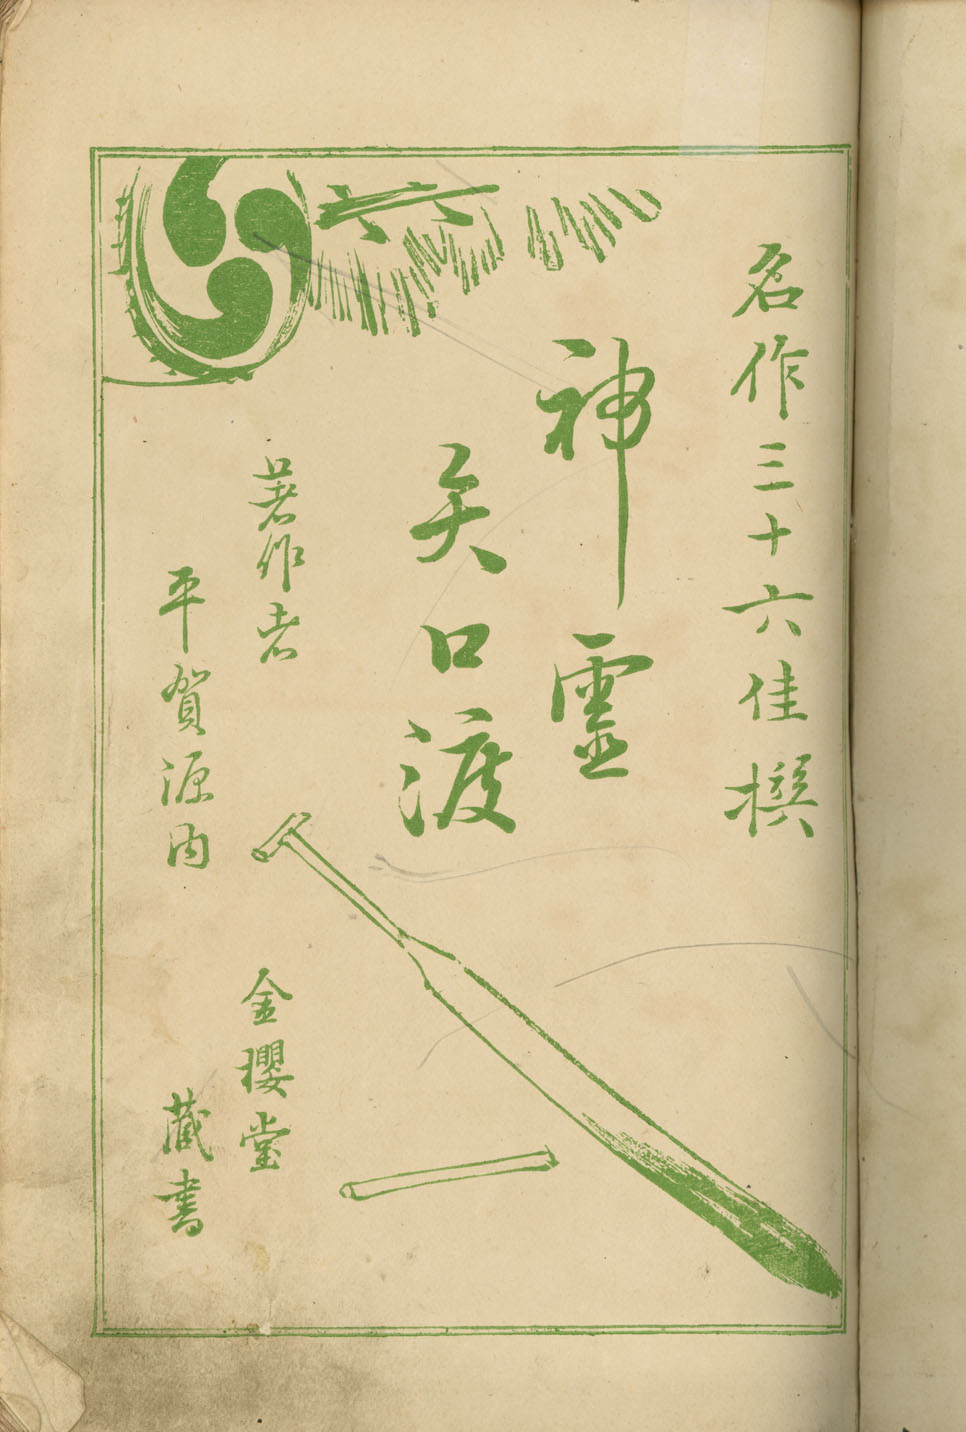 名作三十六佳撰
神靈
矢口渡
著作者
平賀源内
金櫻堂
藏書